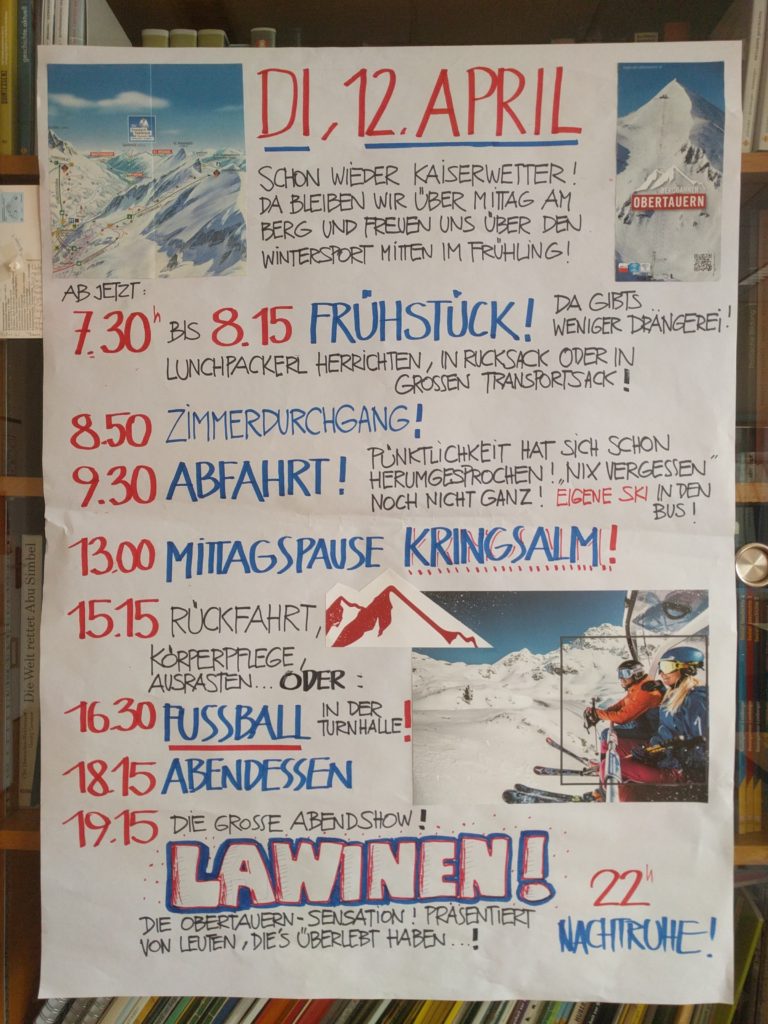 DI, 12. APRIL
SCHON WIEDER KAISERWETTER!
DA BLEIBEN WIR ÜBER MITTAG AM
BERG UND FREUEN UNS ÜBER DEN
WINTERSPORT MITTEN IM FRÜHLING!
OBERTAUERN
AB JETZT:
7.30h BIS 8.15 FRÜHSTÜCK! DA GIBTS
WENIGER DRÄNGEREI!
LUNCHPACKERL HERRICHTEN, IN RUCKSACK ODER IN
GROSSEN TRANSPORTSACK!
8.50 ZIMMERDURCHGANG!
9.30 ABFAHRT!
PÜNKTLICHKEIT HAT SICH SCHON
HERUMGESPROCHEN! „NIX VERGESSEN"
NOCH NICHT GANZ! EIGENE SKI IN DEN
BUS!
13.00 MITTAGSPAUSE KRINGSALM!
15.15 RÜCKFAHRT,
KÖRPERPFLEGE,
AUSRASTEN... ODER:
16.30 FUSSBALL IN DER
TURNHALLE!
18.15 ABENDESSEN
19.15 DIE GROSSE ABENDSHOW!
LAWINEN!
DIE OBERTAUERN-SENSATION! PRÄSENTIERT
VON LEUTEN, DIE'S ÜBERLEBT HABEN...!
22h
NACHTRUHE!
Die Welt rettet Abu Simbel
geschichte.aktuell